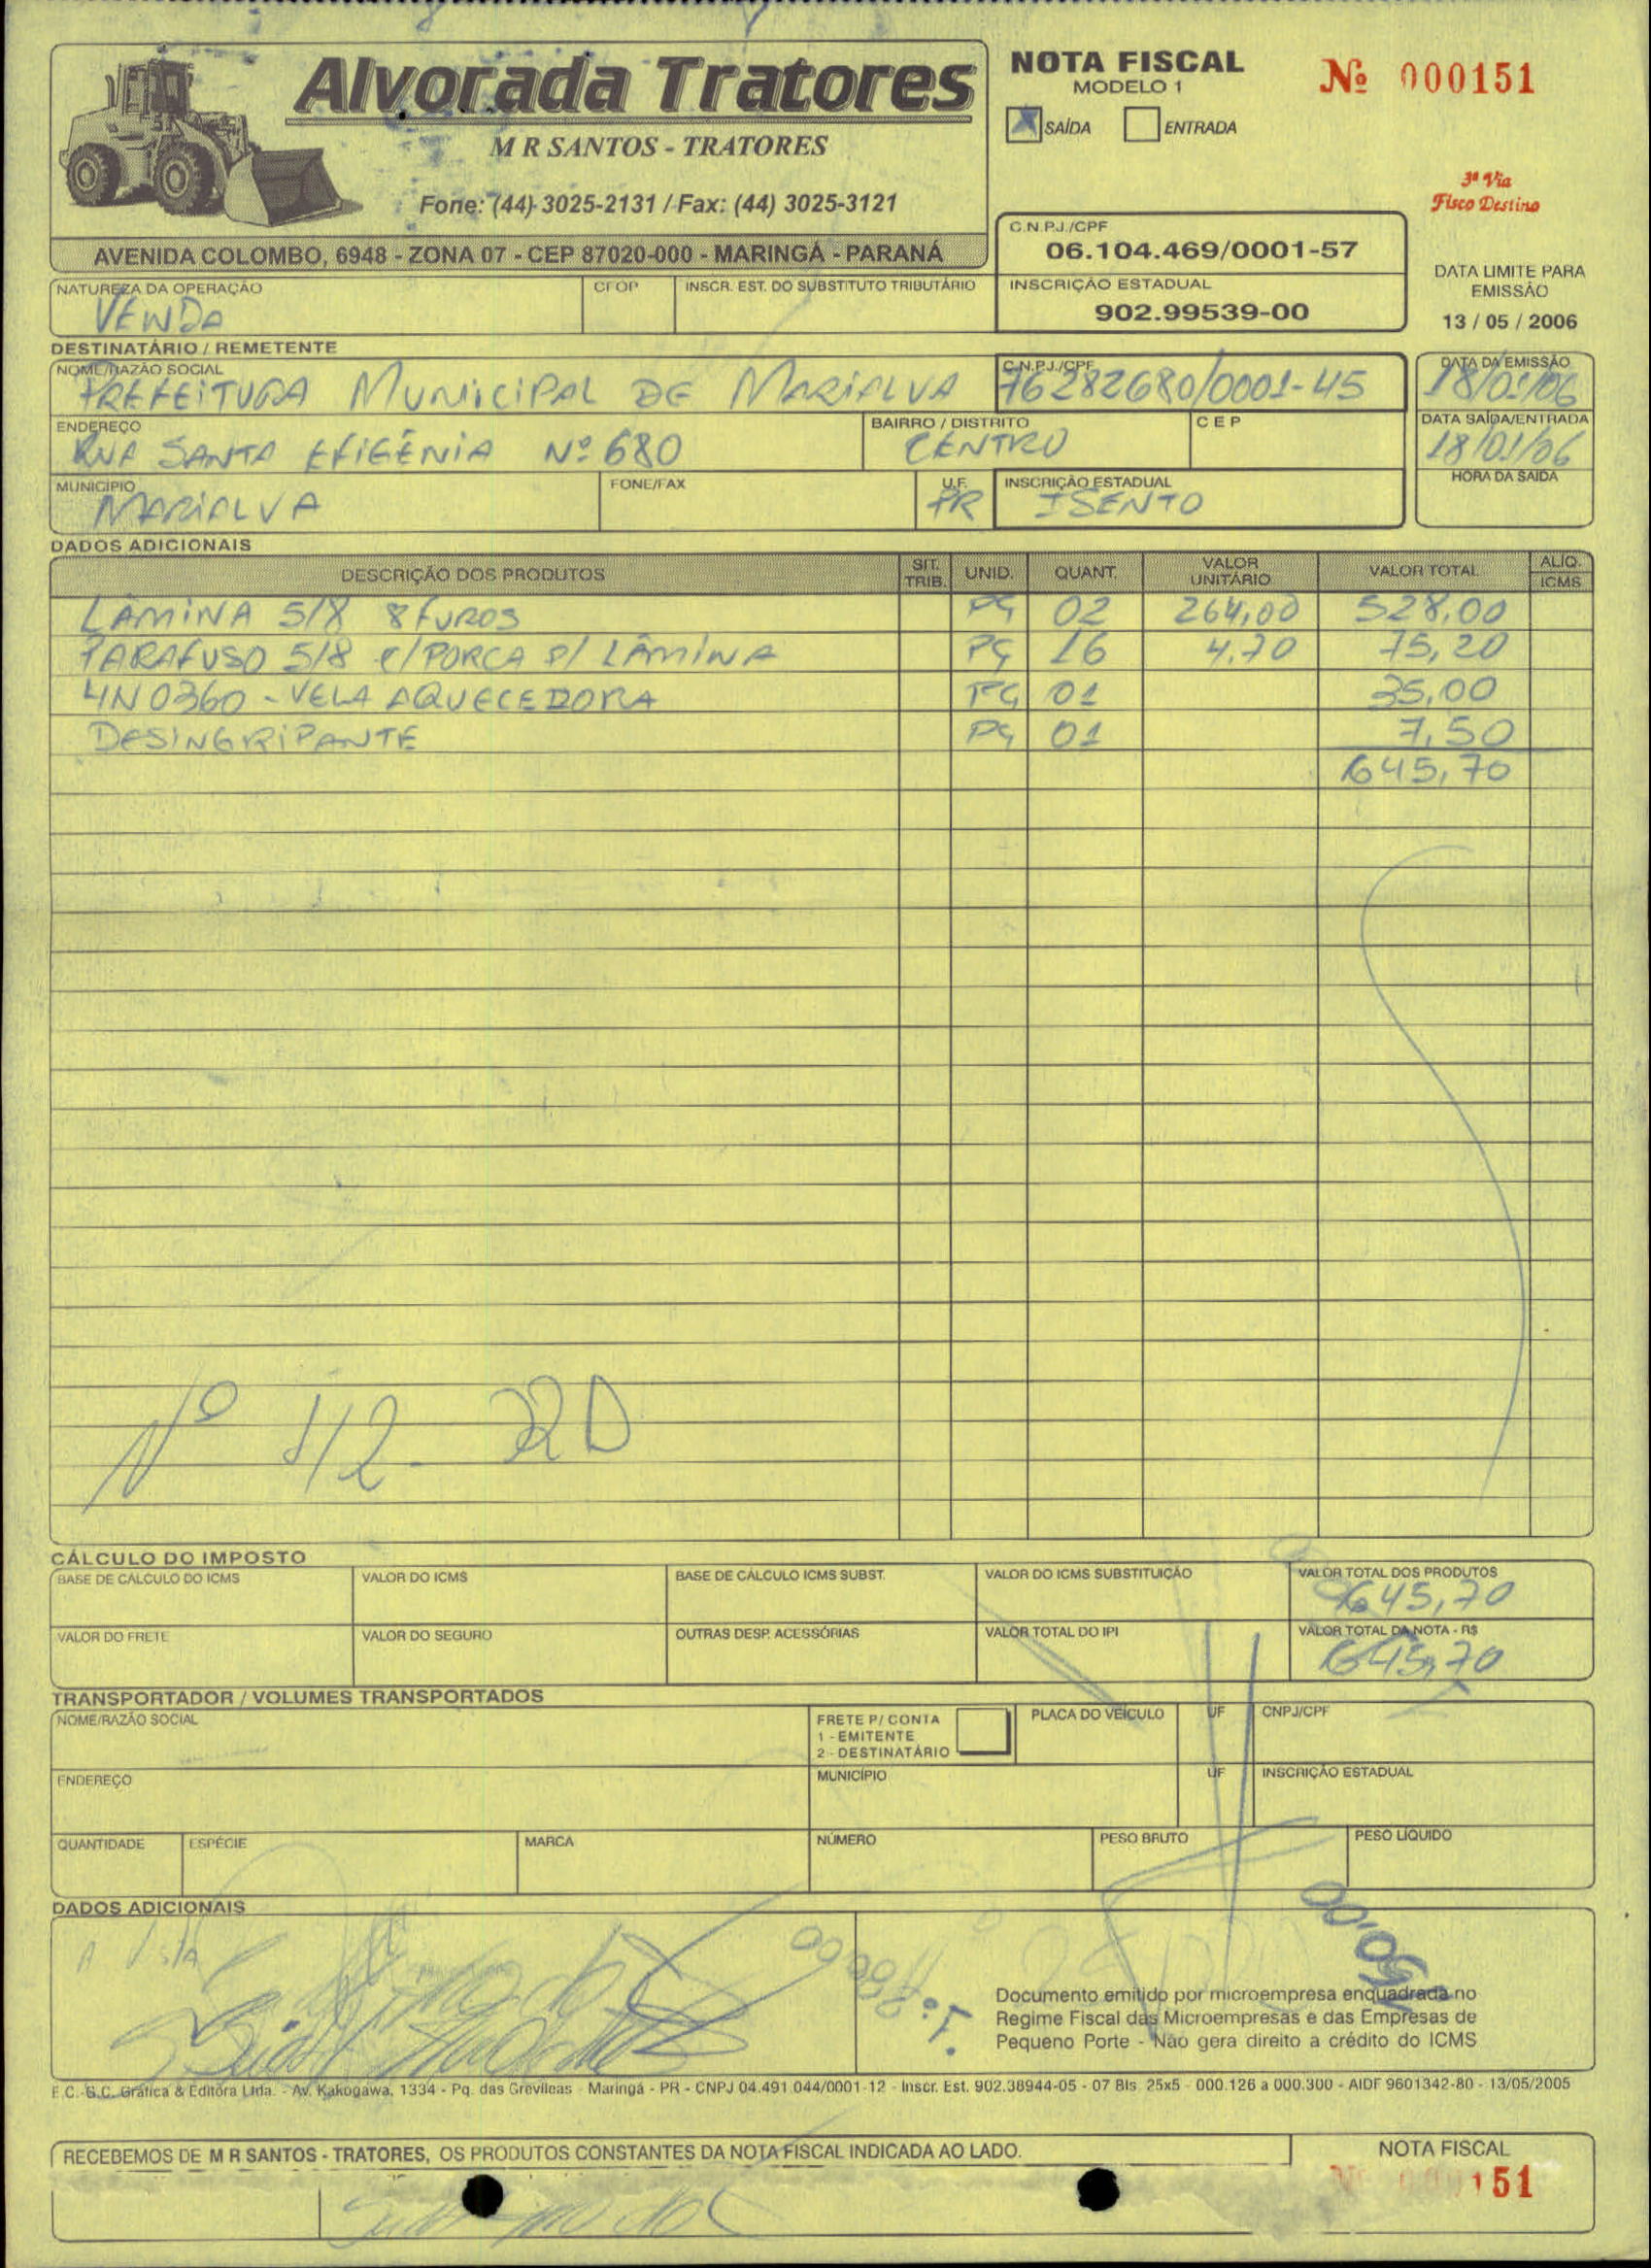 Alvorada Tratores
M R SANTOS - TRATORES
Fone: (44) 3025-2131 / Fax: (44) 3025-3121
AVENIDA COLOMBO, 6948 - ZONA 07 - CEP 87020-000 - MARINGÁ - PARANÁ
NOTA FISCAL
MODELO 1
Nº 000151
X SAÍDA ENTRADA
3ª Via
Fisco Destino
C.N.P.J./CPF
06.104.469/0001-57
INSCRIÇÃO ESTADUAL
902.99539-00
DATA LIMITE PARA
EMISSÃO
13 / 05 / 2006
NATUREZA DA OPERAÇÃO CFOP INSCR. EST. DO SUBSTITUTO TRIBUTÁRIO
VENDA
DESTINATÁRIO / REMETENTE
NOME/RAZÃO SOCIAL C.N.P.J./CPF DATA DA EMISSÃO
PREFEITURA MUNICIPAL DE MARIALVA 76282680/0001-45 18/01/06
ENDEREÇO BAIRRO / DISTRITO CEP DATA SAÍDA/ENTRADA
RUA SANTA EFIGÊNIA Nº 680 CENTRO 18/01/06
MUNICÍPIO FONE/FAX U.F. INSCRIÇÃO ESTADUAL HORA DA SAÍDA
MARIALVA PR ISENTO
DADOS ADICIONAIS
DESCRIÇÃO DOS PRODUTOS SIT. TRIB. UNID. QUANT. VALOR UNITÁRIO VALOR TOTAL ALÍQ. ICMS
LÂMINA 5/8 8 FUROS PÇ 02 264,00 528,00
PARAFUSO 5/8 C/PORCA P/ LÂMINA PÇ 16 4,70 75,20
4N0360 - VELA AQUECEDORA PÇ 01 35,00
DESINGRIPANTE PÇ 01 7,50
645,70
Nº 112
CÁLCULO DO IMPOSTO
BASE DE CÁLCULO DO ICMS VALOR DO ICMS BASE DE CÁLCULO ICMS SUBST. VALOR DO ICMS SUBSTITUIÇÃO VALOR TOTAL DOS PRODUTOS
645,70
VALOR DO FRETE VALOR DO SEGURO OUTRAS DESP. ACESSÓRIAS VALOR TOTAL DO IPI VALOR TOTAL DA NOTA - R$
645,70
TRANSPORTADOR / VOLUMES TRANSPORTADOS
NOME/RAZÃO SOCIAL FRETE P/ CONTA PLACA DO VEÍCULO UF CNPJ/CPF
1 - EMITENTE
2 - DESTINATÁRIO
ENDEREÇO MUNICÍPIO UF INSCRIÇÃO ESTADUAL
QUANTIDADE ESPÉCIE MARCA NÚMERO PESO BRUTO PESO LÍQUIDO
DADOS ADICIONAIS
Documento emitido por microempresa enquadrada no
Regime Fiscal das Microempresas e das Empresas de
Pequeno Porte - Não gera direito a crédito do ICMS
F.C.-G.C. Gráfica & Editora Ltda. - Av. Kakogawa, 1334 - Pq. das Grevíleas - Maringá - PR - CNPJ 04.491.044/0001-12 - Inscr. Est. 902.38944-05 - 07 Bls. 25x5 - 000.126 a 000.300 - AIDF 9601342-80 - 13/05/2005
RECEBEMOS DE M R SANTOS - TRATORES, OS PRODUTOS CONSTANTES DA NOTA FISCAL INDICADA AO LADO.
NOTA FISCAL
151